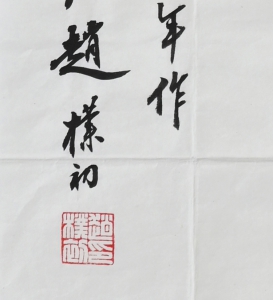 年作
趙樸初
趙樸初印